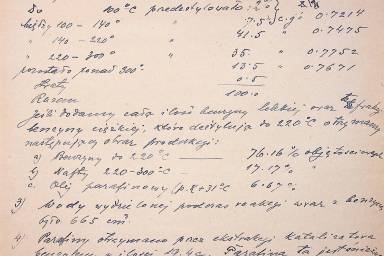 Do 100°C predestylowało: 2% }
między 100 - 140° " 7.5 c.g. 0.7214
" 140 - 220° " 41.5 " 0.7475
" 220 - 300° " 35. " 0.7752
pozostało ponad 300° 13.5 " 0.7671
Straty 0.5
Razem 100.0
Jeśli dodamy całą ilość benzyny lekkiej oraz tę frakcję
benzyny ciężkiej, która destyluje do 220°C otrzymamy
następujący obraz produkcji:
a) Benzyny do 220°C — 76.16% objętościowych
b) Nafty 220-300°C — 17.17% "
c. Olej parafinowy (p.k.+31°C 6.67%
3) Wody wydzielonej podczas reakcji wraz z benzyną
było 665 cm³
4) Parafiny otrzymano przez ekstrakcję katalizatora
benzenem w ilości 17.4g. Parafina ta jest